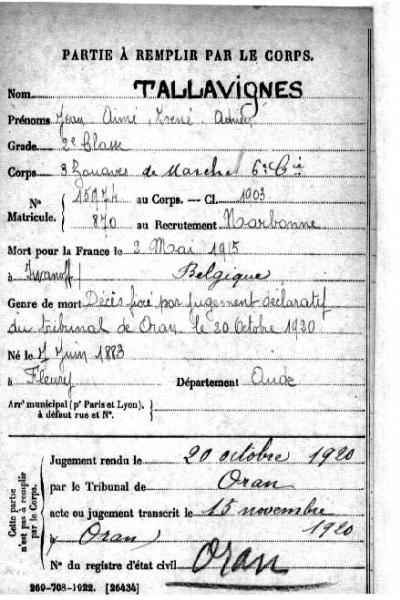 PARTIE À REMPLIR PAR LE CORPS.
Nom TALLAVIGNES
Prénoms Jean Aimé Irené Adrien
Grade 2e Classe
Corps 3 Zouaves de Marche 6e Cie
N° Matricule. { 15974 au Corps. — Cl. 1903
870 au Recrutement Narbonne
Mort pour la France le 2 Mai 1915
à Belgique
Genre de mort Décès fixé par jugement déclaratif
du tribunal de Oran le 20 Octobre 1920
Né le 7 Juin 1883
à Fleury Département Aude
Arrt municipal (pr Paris et Lyon), à défaut rue et N°. }
Cette partie n'est pas à remplir par le Corps.
Jugement rendu le 20 octobre 1920
par le Tribunal de Oran
acte ou jugement transcrit le 15 novembre
à Oran 1920
N° du registre d'état civil Oran
269-708-1922. [26434]